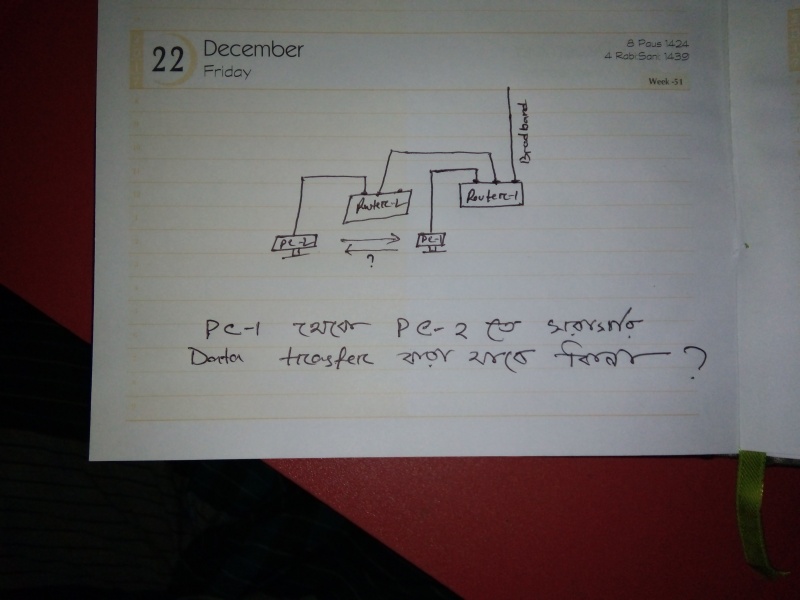 22
December
Friday
8 Paus 1424
4 Rabi:Sani: 1439
Week -51
Broadband
Router-2
Router-1
PC-2
PC-1
?
PC-1 থেকে PC-2 তে সরাসরি
Data transfer করা যাবে কিনা ?